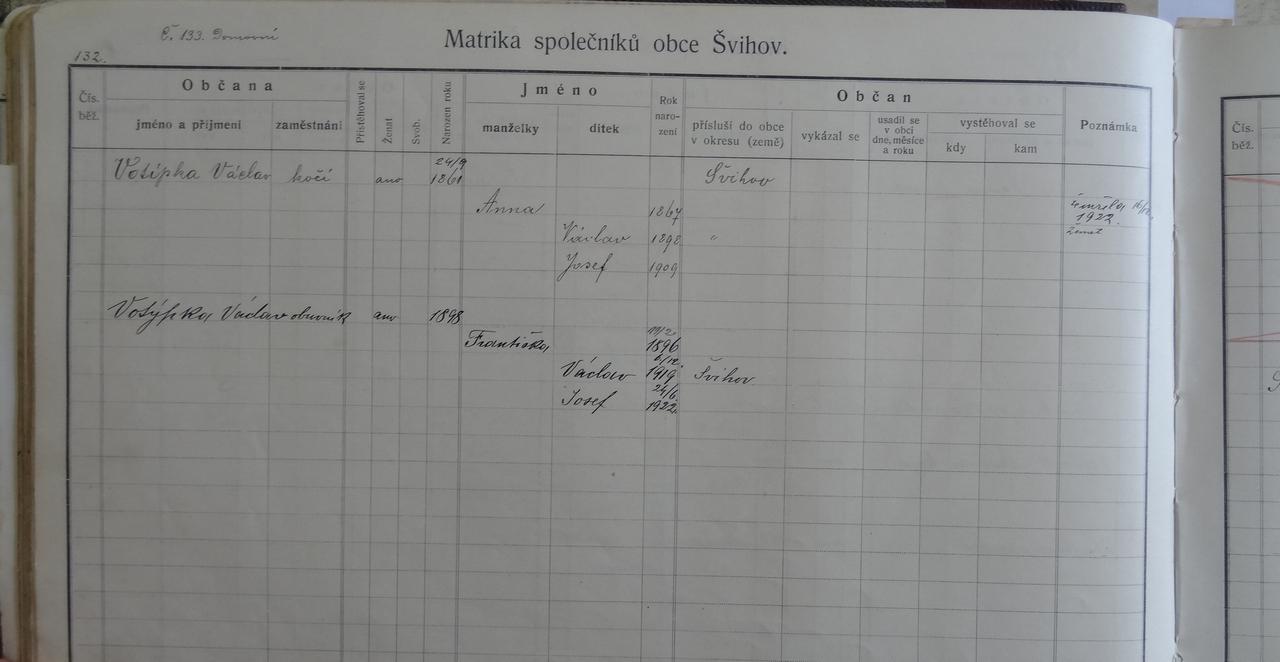 Č. 133. Domovní
132.
Matrika společníků obce Švihov.
Čís. běž.
Občana
jméno a příjmení
zaměstnání
Přistěhoval se
Ženat
Svob.
Narozen roku
Jméno
manželky
dítek
Rok naro- zení
Občan
přísluší do obce v okresu (země)
vykázal se
usadil se v obci dne, měsíce a roku
vystěhoval se
kdy
kam
Poznámka
Čís. běž.
Votípka Václav kočí ano 24/9 1861 Švihov
Anna 1867 zemřela 1922.
Václav 1898 " ženat
Josef 1909
Votýpka Václav obuvník ano 1898
Františka 1896
Václav 6/12. 1919 Švihov
Josef 24/6. 1922.